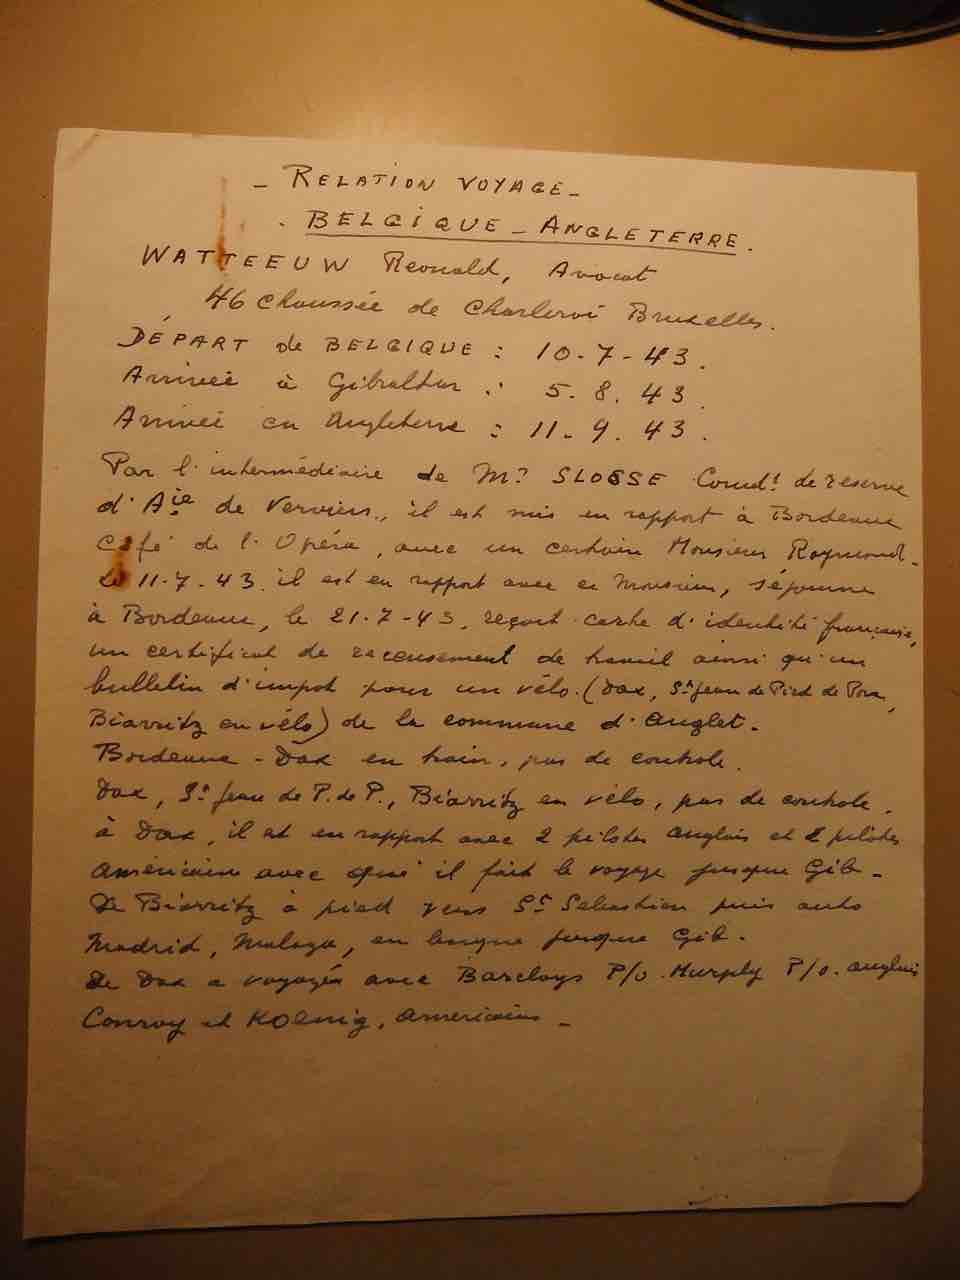 - RELATION VOYAGE -
. BELGIQUE - ANGLETERRE.
WATTEEUW Reonald, Avocat
46 Chaussée de Charleroi Bruxelles.
DÉPART de BELGIQUE : 10-7-43.
Arrivée à Gibraltar : 5.8.43.
Arrivée en Angleterre : 11-9.43.
Par l'intermédiaire de Mr SLOSSE Comdt de reserve
d'Aie de Verviers, il est mis en rapport à Bordeaux
Café de l'Opéra, avec un certain Monsieur Raymond.
Le 11-7-43. il est en rapport avec ce Monsieur, séjourne
à Bordeaux, le 21-7-43, reçoit carte d'identité française,
un certificat de recensement de travail ainsi qu'un
bulletin d'impot pour un vélo. (Dax, St Jean de Pied de Port,
Biarritz en vélo) de la commune d'Anglet.
Bordeaux - Dax en train, pas de controle.
Dax, St Jean de P. de P., Biarritz en vélo, pas de controle.
à Dax, il est en rapport avec 2 pilotes anglais et 2 pilotes
américains avec qui il fait le voyage jusque Gib-
De Biarritz à pied vers St Sebastien puis auto
Madrid, Malaga, en barque jusque Gib.
De Dax a voyagé avec Barclays P/O. Murphy P/O. anglais
Conroy et Koenig, américains -